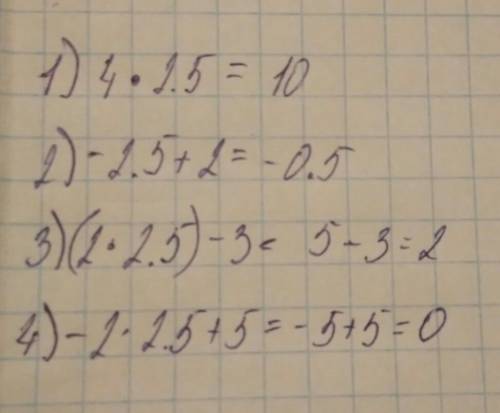 1) 4 · 2.5 = 10
2) -2.5 + 2 = -0.5
3) (2 · 2.5) - 3 = 5 - 3 = 2
4) -2 · 2.5 + 5 = -5 + 5 = 0